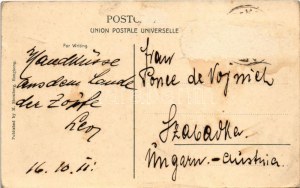 POSTC
UNION POSTALE UNIVERSELLE
For Writing.
Handküsse
aus dem Lande
der Zöpfe
16.10.11.
Frau
Ponce de Vojnich
Szabadka.
Ungarn-Austria.
Published by